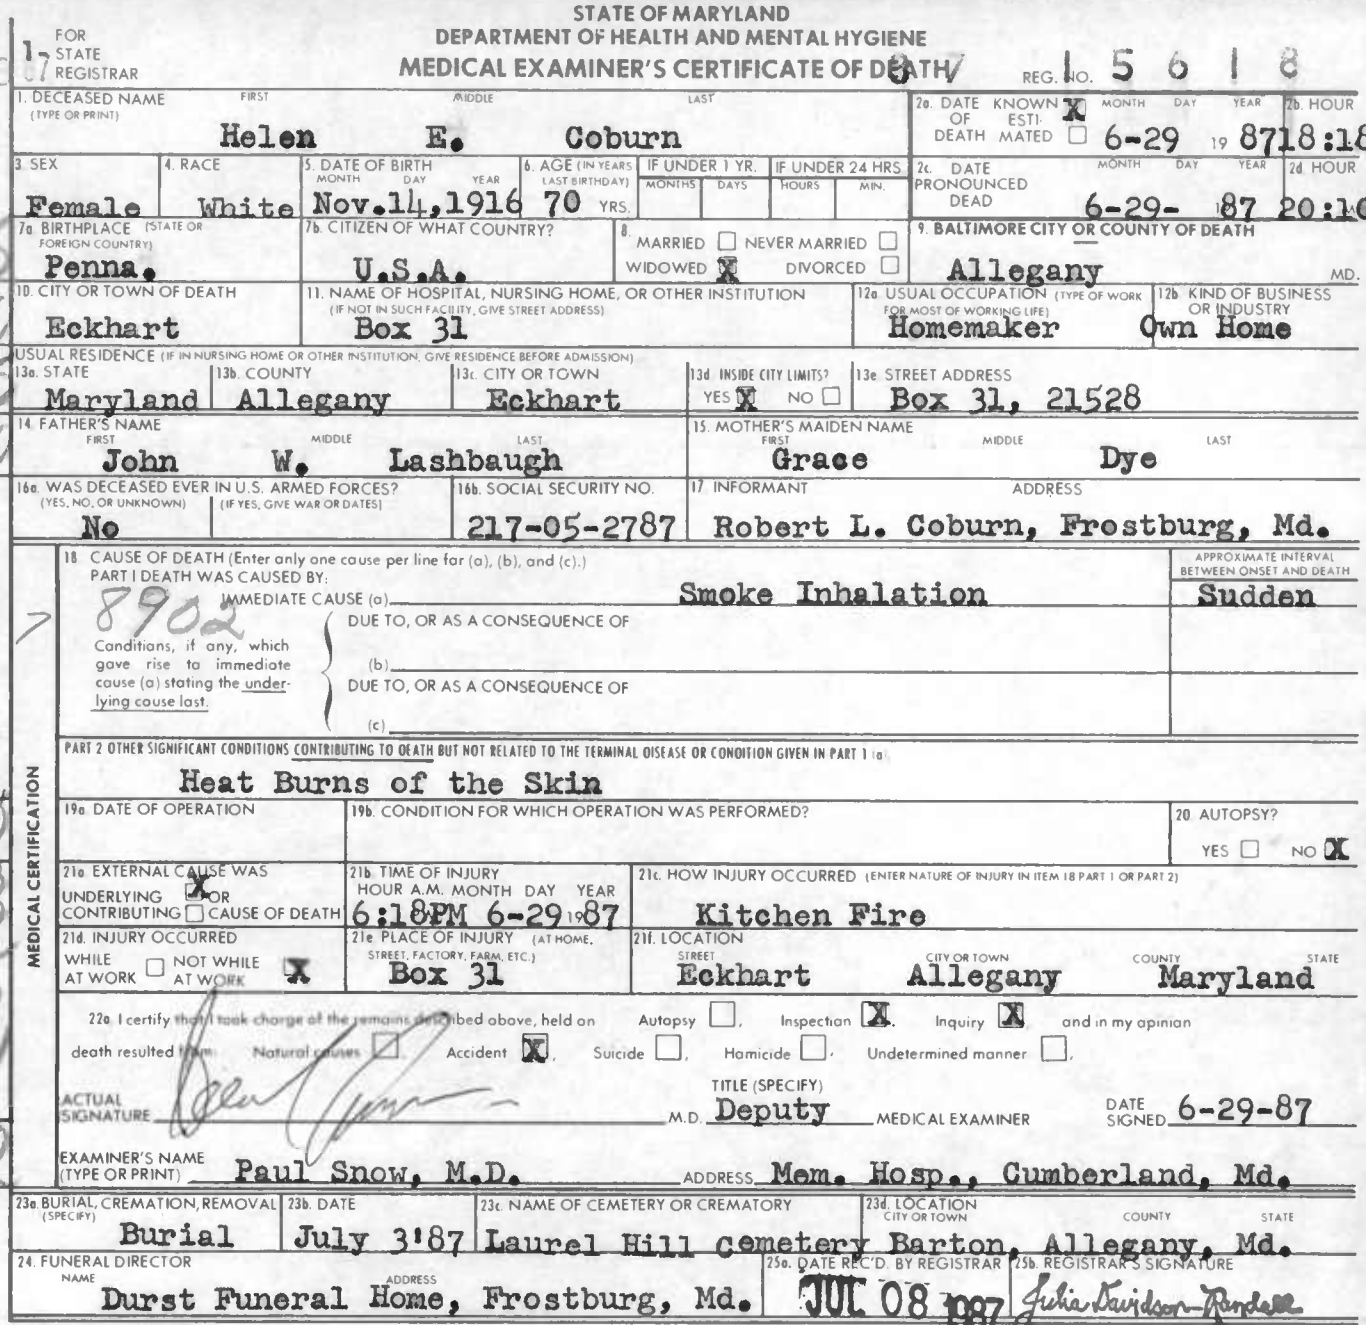 STATE OF MARYLAND
DEPARTMENT OF HEALTH AND MENTAL HYGIENE
MEDICAL EXAMINER'S CERTIFICATE OF DEATH
FOR STATE REGISTRAR
REG. NO. 87 15618
1. DECEASED NAME (TYPE OR PRINT) FIRST MIDDLE LAST
Helen E. Coburn
2a. DATE OF DEATH KNOWN X ESTIMATED MONTH DAY YEAR 2b. HOUR
6-29 19 87 18:18
3. SEX 4. RACE 5. DATE OF BIRTH MONTH DAY YEAR 6. AGE (IN YEARS LAST BIRTHDAY) IF UNDER 1 YR. MONTHS DAYS IF UNDER 24 HRS HOURS MIN.
Female White Nov.14,1916 70 YRS.
2c. DATE PRONOUNCED DEAD MONTH DAY YEAR 2d HOUR
6-29- 1987 20:10
7a. BIRTHPLACE (STATE OR FOREIGN COUNTRY) 7b. CITIZEN OF WHAT COUNTRY?
Penna. U.S.A.
8. MARRIED NEVER MARRIED
WIDOWED X DIVORCED
9. BALTIMORE CITY OR COUNTY OF DEATH
Allegany MD.
10. CITY OR TOWN OF DEATH 11. NAME OF HOSPITAL, NURSING HOME, OR OTHER INSTITUTION (IF NOT IN SUCH FACILITY, GIVE STREET ADDRESS)
Eckhart Box 31
12a USUAL OCCUPATION (TYPE OF WORK FOR MOST OF WORKING LIFE) 12b. KIND OF BUSINESS OR INDUSTRY
Homemaker Own Home
USUAL RESIDENCE (IF IN NURSING HOME OR OTHER INSTITUTION, GIVE RESIDENCE BEFORE ADMISSION)
13a. STATE 13b. COUNTY 13c. CITY OR TOWN 13d. INSIDE CITY LIMITS? 13e STREET ADDRESS
Maryland Allegany Eckhart YES X NO Box 31, 21528
14. FATHER'S NAME FIRST MIDDLE LAST 15. MOTHER'S MAIDEN NAME FIRST MIDDLE LAST
John W. Lashbaugh Grace Dye
16a. WAS DECEASED EVER IN U.S. ARMED FORCES? (YES, NO, OR UNKNOWN) (IF YES, GIVE WAR OR DATES) 16b. SOCIAL SECURITY NO. 17. INFORMANT ADDRESS
No 217-05-2787 Robert L. Coburn, Frostburg, Md.
MEDICAL CERTIFICATION
18 CAUSE OF DEATH (Enter only one cause per line for (a), (b), and (c).)
APPROXIMATE INTERVAL BETWEEN ONSET AND DEATH
PART I DEATH WAS CAUSED BY:
IMMEDIATE CAUSE (a) Smoke Inhalation Sudden
8902
DUE TO, OR AS A CONSEQUENCE OF
Conditions, if any, which
gave rise to immediate
cause (a) stating the under-
lying cause last.
(b)
DUE TO, OR AS A CONSEQUENCE OF
(c)
PART 2 OTHER SIGNIFICANT CONDITIONS CONTRIBUTING TO DEATH BUT NOT RELATED TO THE TERMINAL DISEASE OR CONDITION GIVEN IN PART 1 (a)
Heat Burns of the Skin
19a. DATE OF OPERATION 19b. CONDITION FOR WHICH OPERATION WAS PERFORMED? 20. AUTOPSY?
YES NO X
21a. EXTERNAL CAUSE WAS
UNDERLYING X OR
CONTRIBUTING CAUSE OF DEATH
21b. TIME OF INJURY
HOUR A.M. MONTH DAY YEAR
6:18PM 6-29 1987
21c. HOW INJURY OCCURRED (ENTER NATURE OF INJURY IN ITEM 18 PART 1 OR PART 2)
Kitchen Fire
21d. INJURY OCCURRED
WHILE AT WORK NOT WHILE AT WORK X
21e PLACE OF INJURY (AT HOME, STREET, FACTORY, FARM, ETC.)
Box 31
21f. LOCATION STREET CITY OR TOWN COUNTY STATE
Eckhart Allegany Maryland
22a. I certify that I took charge of the remains described above, held on Autopsy, Inspection X, Inquiry X, and in my opinion
death resulted from: Natural causes, Accident X, Suicide, Homicide, Undetermined manner,
ACTUAL SIGNATURE M.D. TITLE (SPECIFY) Deputy MEDICAL EXAMINER DATE SIGNED 6-29-87
EXAMINER'S NAME (TYPE OR PRINT) Paul Snow, M.D. ADDRESS Mem. Hosp., Cumberland, Md.
23a. BURIAL, CREMATION, REMOVAL (SPECIFY) 23b. DATE 23c. NAME OF CEMETERY OR CREMATORY 23d. LOCATION CITY OR TOWN COUNTY STATE
Burial July 3'87 Laurel Hill Cemetery Barton, Allegany, Md.
24. FUNERAL DIRECTOR NAME ADDRESS
Durst Funeral Home, Frostburg, Md.
25a. DATE REC'D. BY REGISTRAR 25b. REGISTRAR'S SIGNATURE
JUL 08 1987 Julia Davidson-Randall